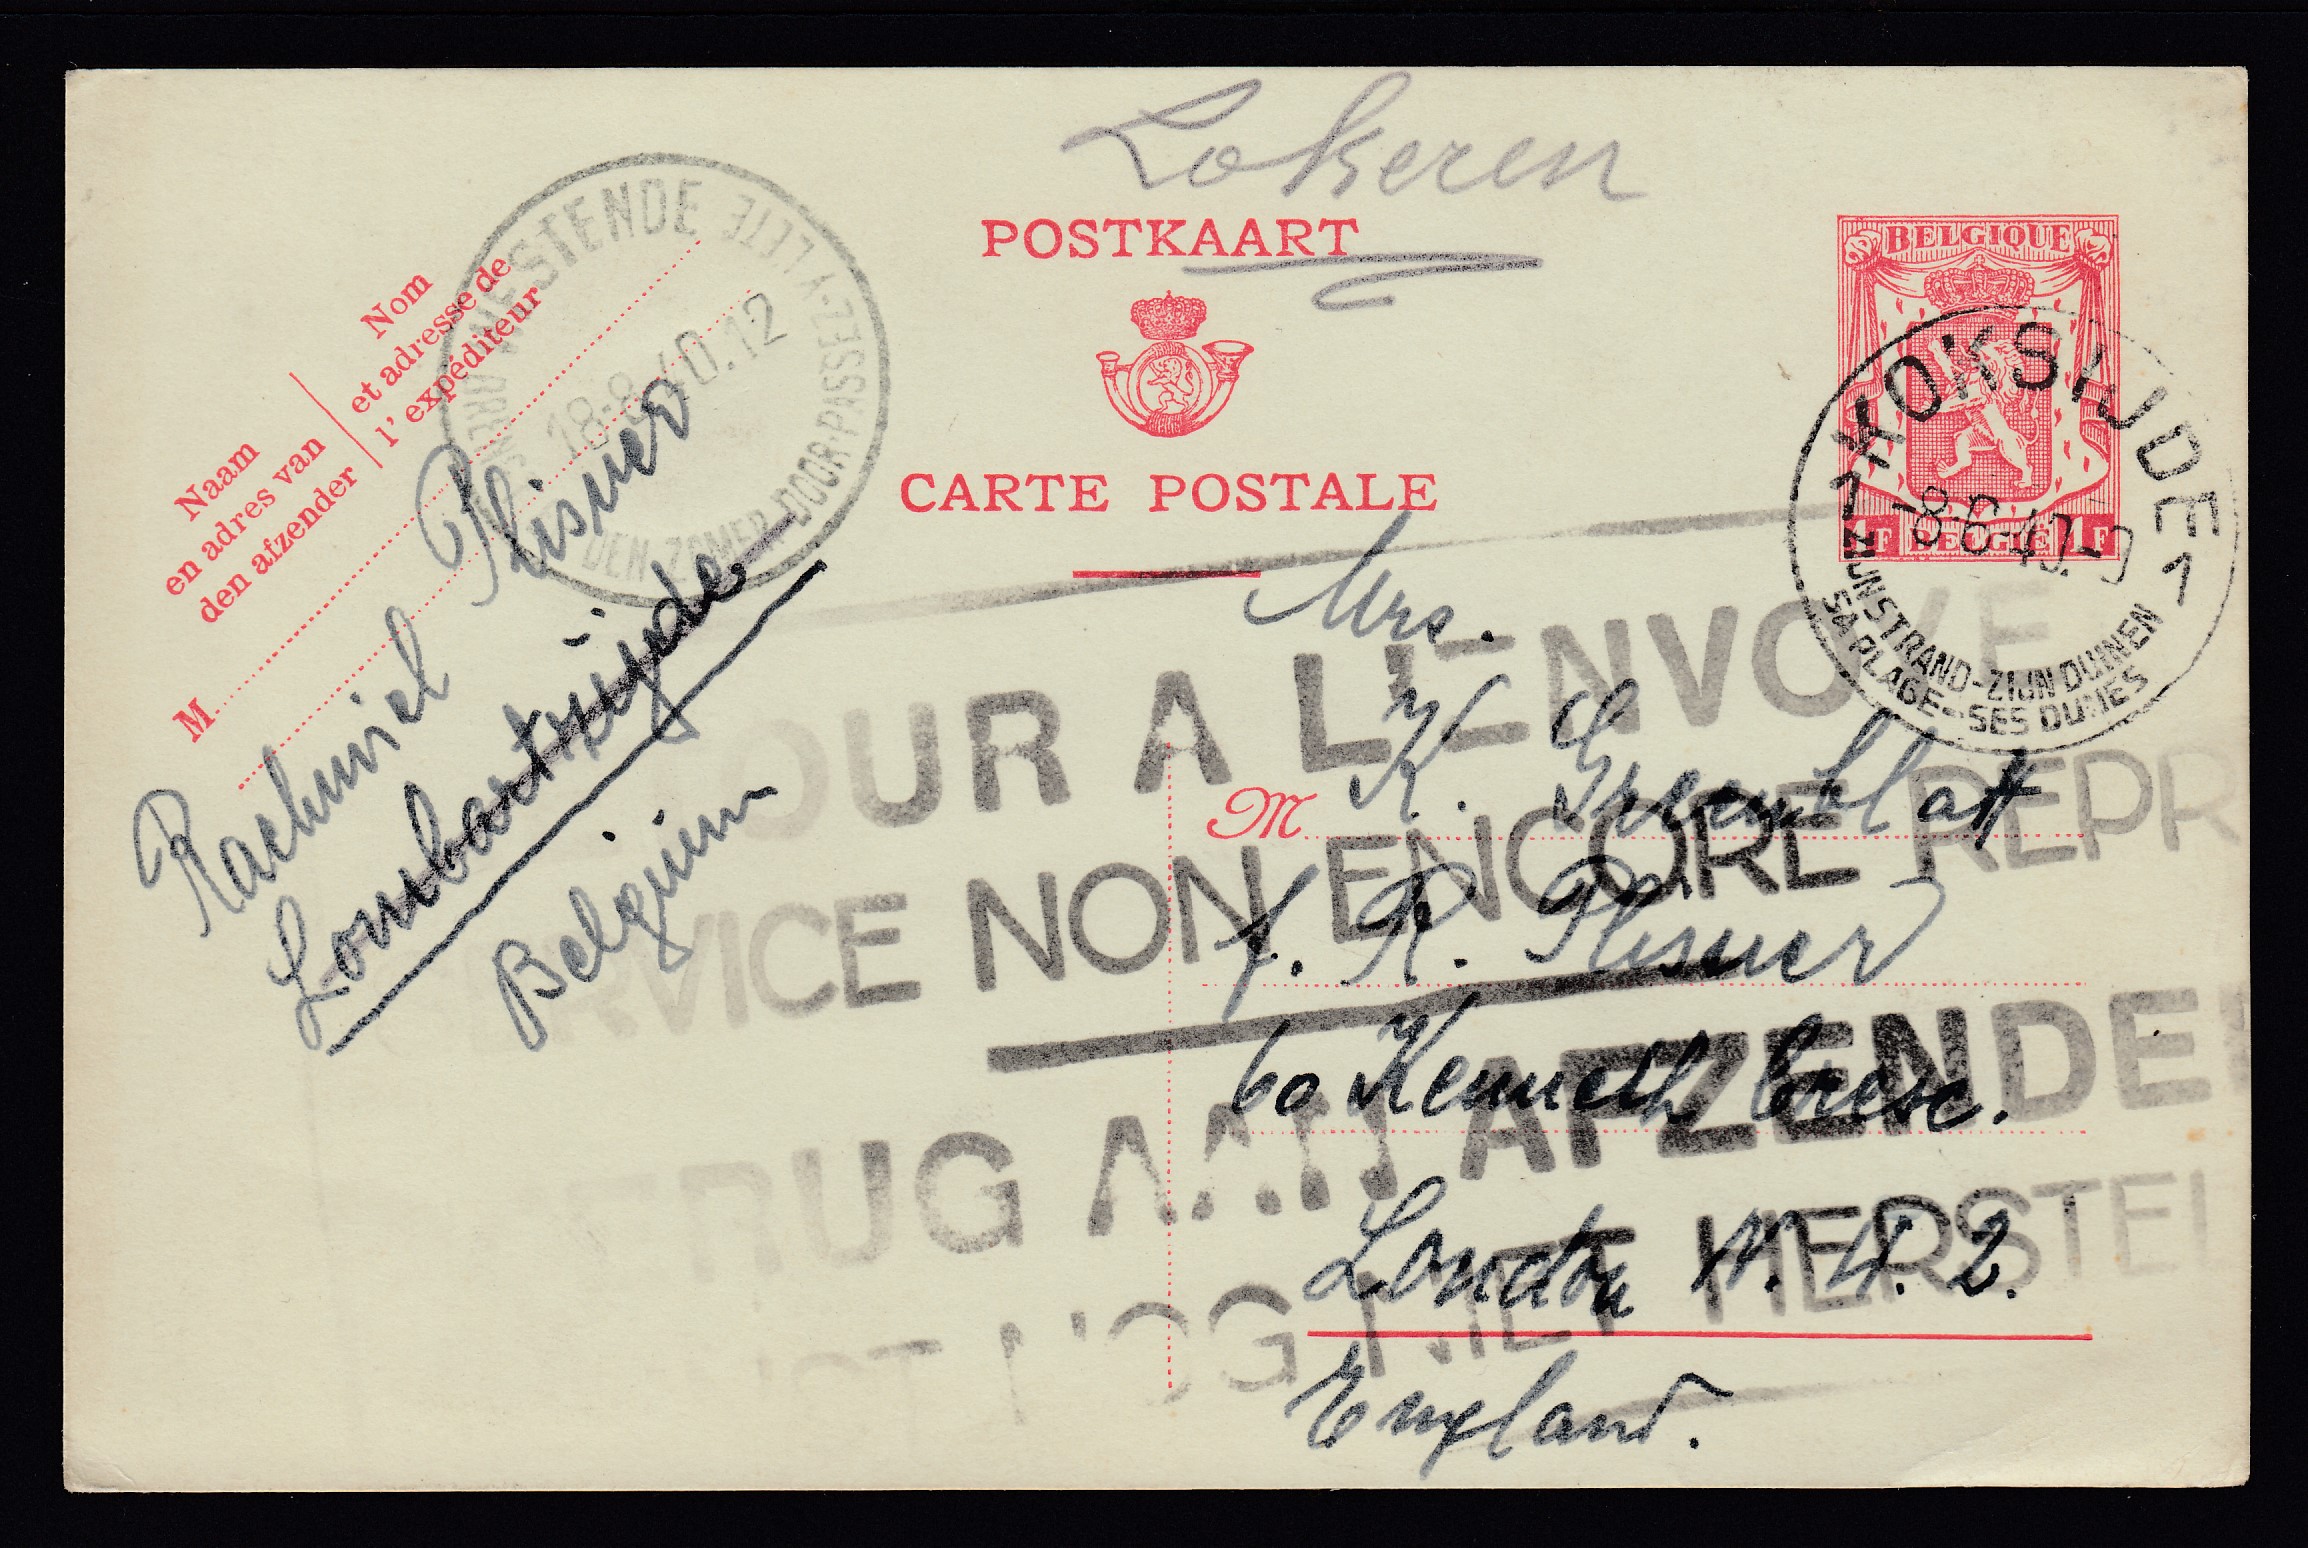 Lokeren
POSTKAART
CARTE POSTALE
BELGIQUE
1F BELGIË 1F
KOKSIJDE
1 -8-6-40.-9 1
ZIJN STRAND-ZIJN DUINEN
SA PLAGE-SES DUNES
WESTENDE
18-8-40.12
DEN-ZOMER-DOOR
PASSEZ-Y L'ETE
Nom
et adresse de
l'expéditeur
Naam
en adres van
den afzender
M
Rachmiel Plisner
Lombartzijde
Belgium
OUR A L'ENVOYE
SERVICE NON ENCORE REPR
TERUG AAN AFZENDER
NOG NIET HERSTEL
Mrs.
M K. Greenblatt
f. R. Plisner
60 Kenneth Cresc.
London N. W. 2.
England.